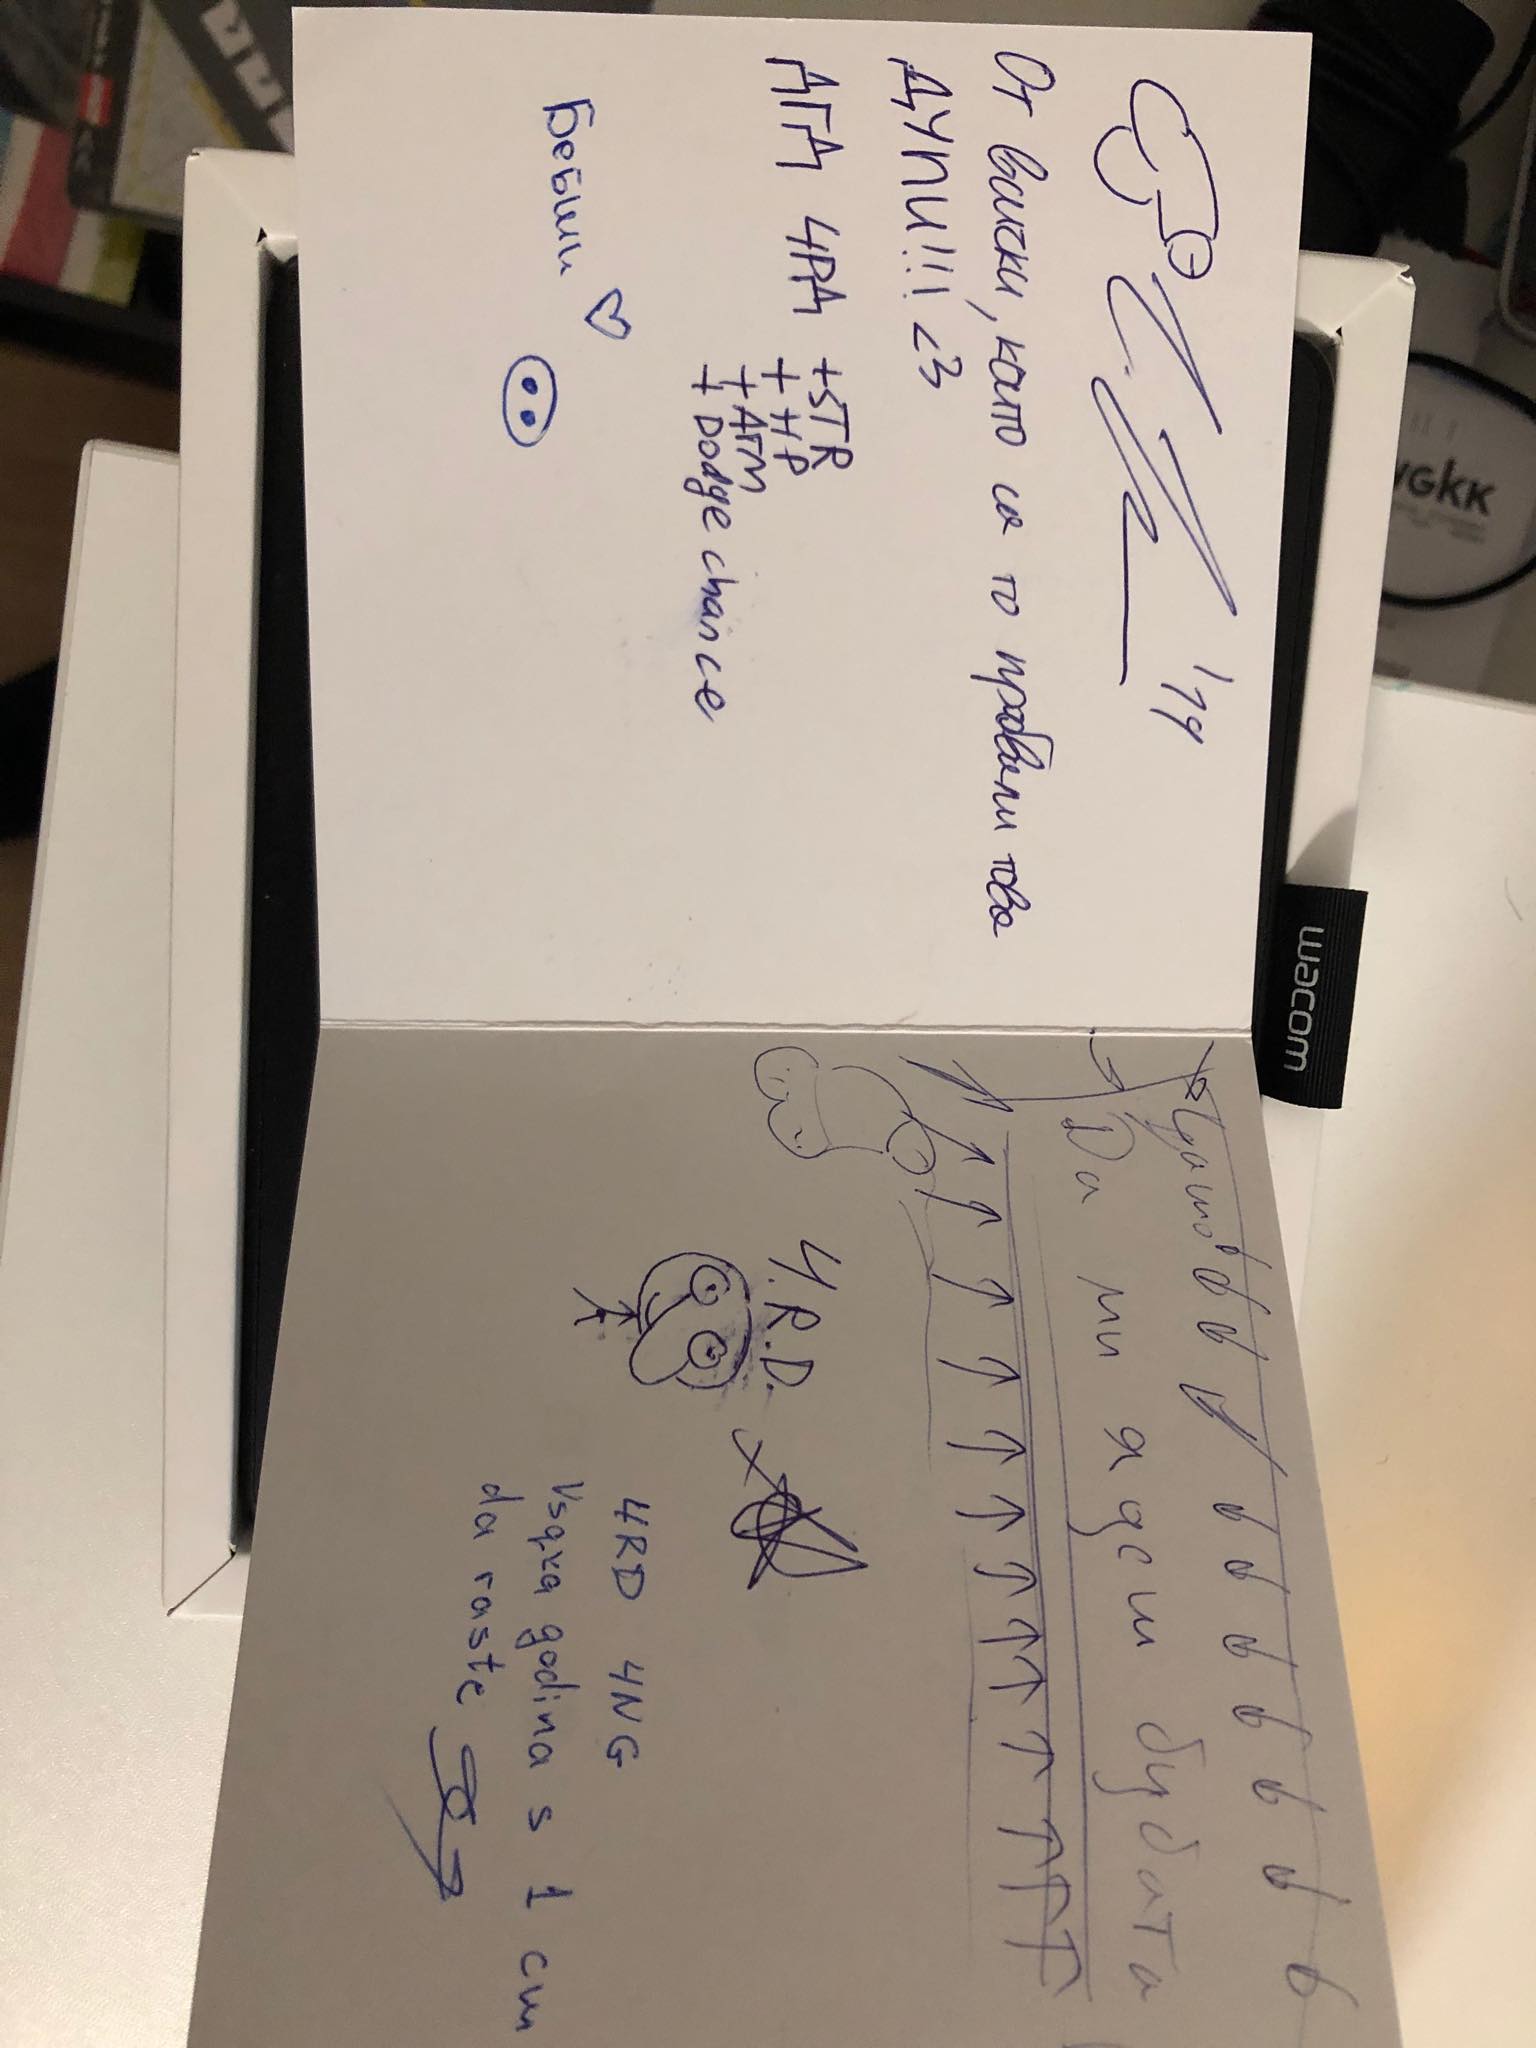 wacom
'19
От всички, които са го пробвали това
ДУПИ!!! <3
ДГД ЧРД +STR
+ HP
+ ATM
+ Dodge chance
Бебши
Да ми ядеш бубата
4.R.D.
4RD 4NG
Vsqka godina s 1 cm
da raste